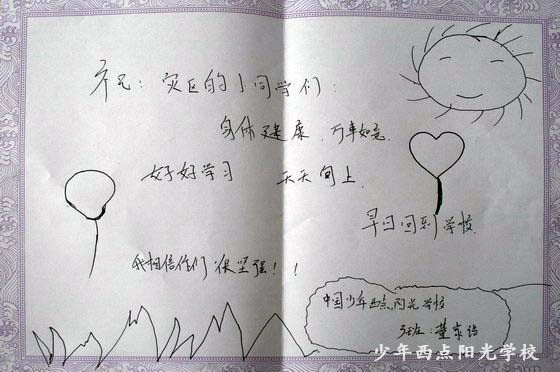 祝：灾区的小同学们：
身体健康，万事如意。
好好学习 天天向上
早日回到学校
我相信你们很坚强！！
中国少年西点阳光学校
3班：董
少年西点阳光学校